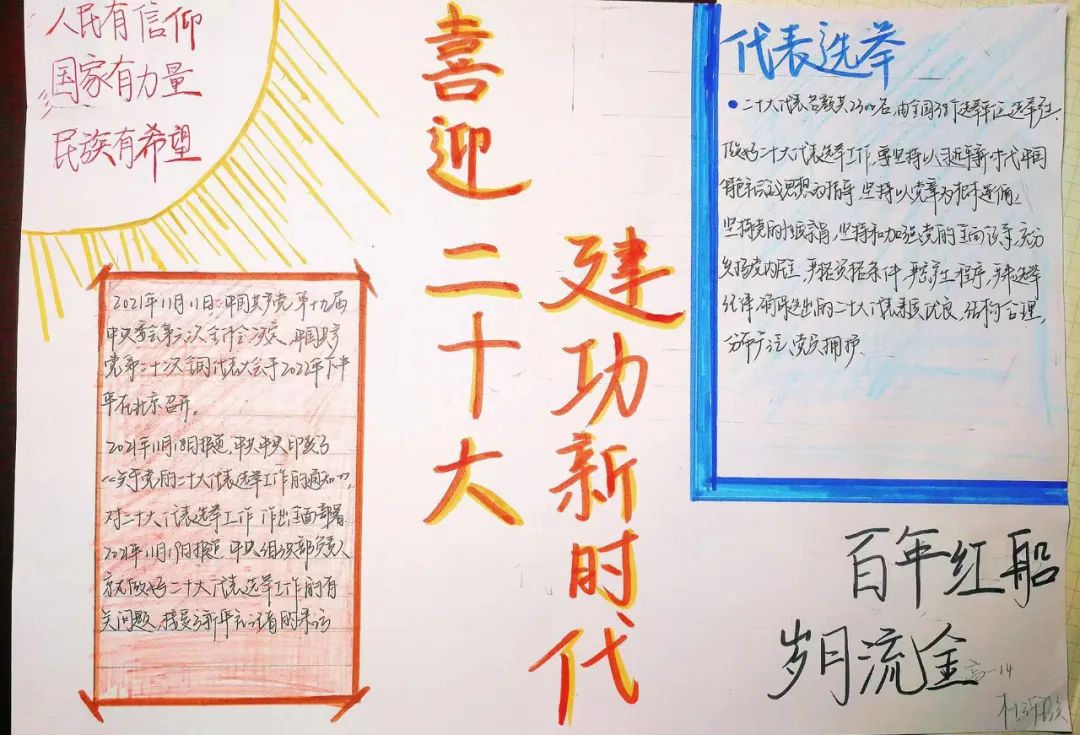 人民有信仰
国家有力量
民族有希望
喜迎二十大
建功新时代
代表选举
二十大代表名额共2300名,由全国38个选举单位选举产生.
做好二十大代表选举工作,要坚持以习近平新时代中国
思想为指导,坚持以党章为根本遵循,
坚持党的性质宗旨,坚持和加强党的全面领导,充分
发扬党内民主,严格资格条件,严密产生程序,严肃选举
纪律,确保选出的二十大代表素质优良,结构合理,
分布广泛、党员拥护.
2021年11月11日,中国共产党第十九届
中央委会第六次全体会议决定,中国共产
党第二十次全国代表大会于2022年下半
年在北京召开。
2021年11月18日报道,中共中央印发了
《关于党的二十大代表选举工作的通知》,
对二十大代表选举工作作出全面部署.
2021年11月19日报道,中央组织部负责人
就做好二十大代表选举工作的有
关问题,接受了新华社记者的采访
百年红船
岁月流金
高一14